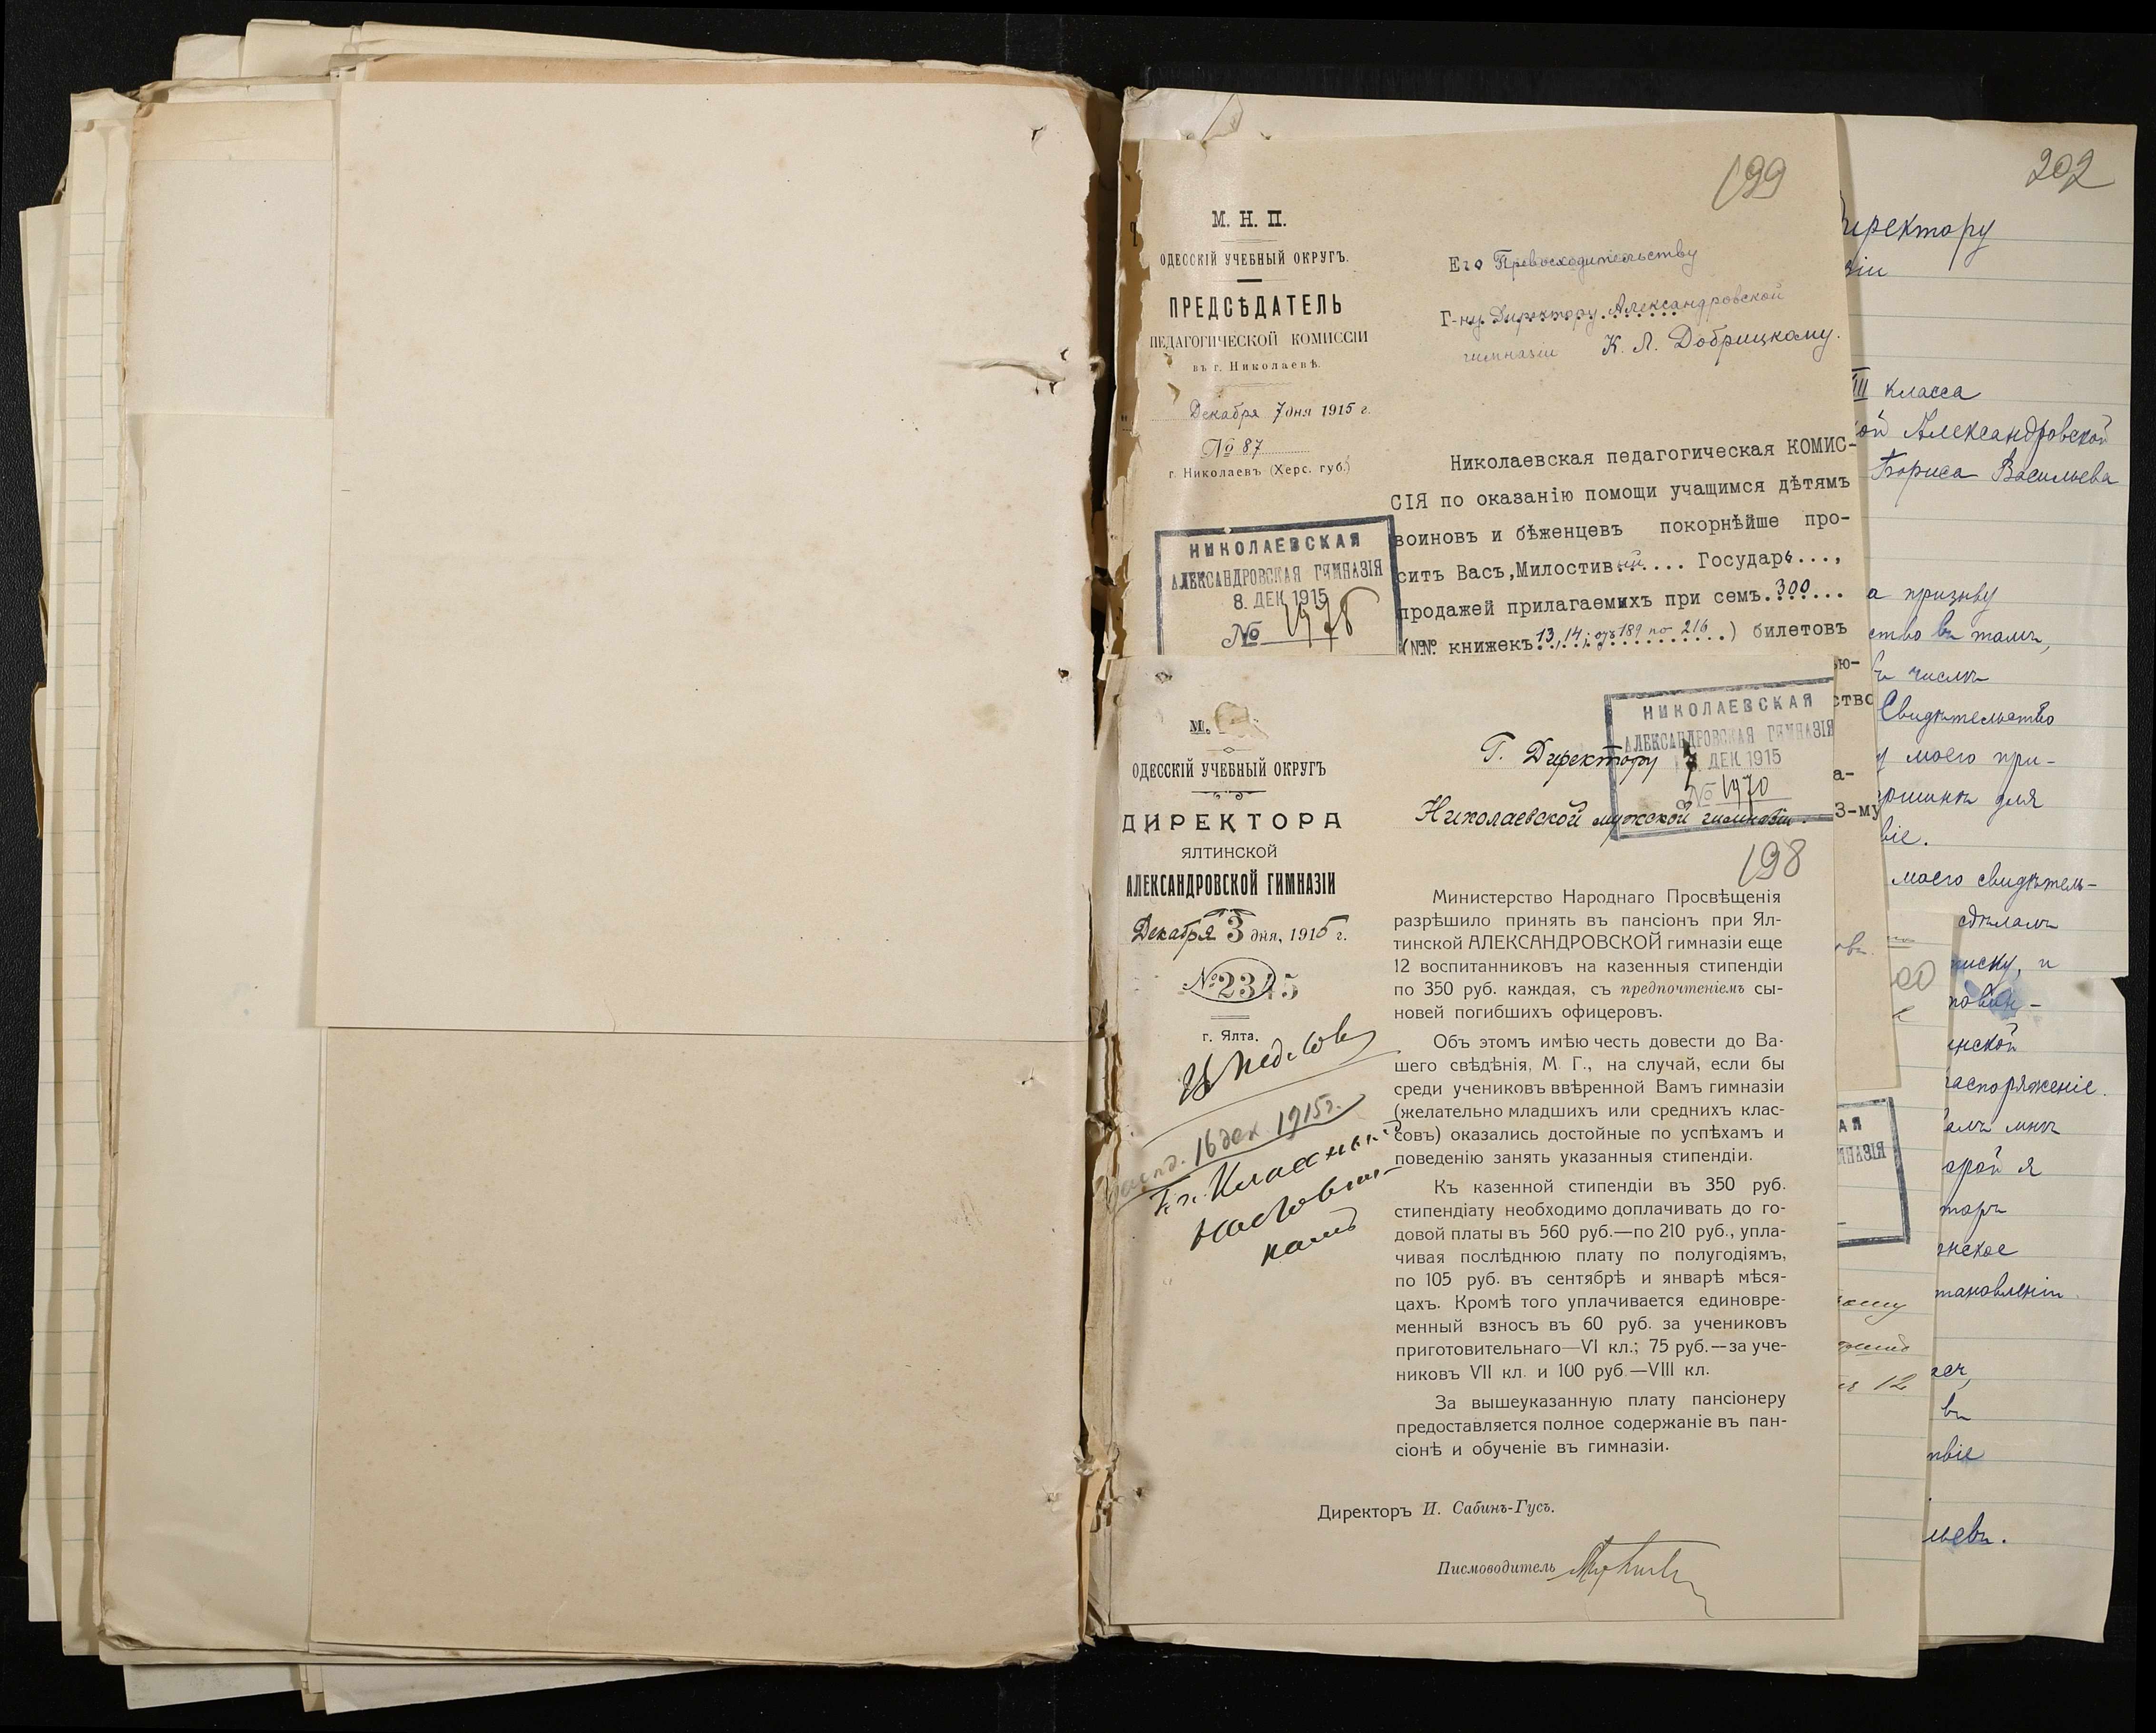 199
М. Н. П.
ОДЕССКІЙ УЧЕБНЫЙ ОКРУГЪ.
ПРЕДСѢДАТЕЛЬ
ПЕДАГОГИЧЕСКОЙ КОМИССІИ
въ г. Николаевѣ.
Декабря 7 дня 1915 г.
№ 87
г. Николаевъ (Херс. губ.)
Его Превосходительству
Г-ну Директору Александровской
гимназіи К. Л. Добрицкому.
Николаевская педагогическая КОМИС-
СІЯ по оказанію помощи учащимся дѣтямъ
воиновъ и бѣженцевъ покорнѣйше про-
ситъ Васъ, Милостивый.... Государь...,
продажей прилагаемыхъ при семъ.300...
(№№ книжекъ 13, 14; отъ 189 по 216) билетовъ
НИКОЛАЕВСКАЯ
АЛЕКСАНДРОВСКАЯ ГИМНАЗІЯ
8. ДЕК 1915
№ 1976
ью-
ство
а-
3-му
М.
ОДЕССКІЙ УЧЕБНЫЙ ОКРУГЪ
ДИРЕКТОРА
ЯЛТИНСКОЙ
АЛЕКСАНДРОВСКОЙ ГИМНАЗІИ
Декабря 3 дня, 1915 г.
№ 2345
г. Ялта.
16 дек 1915г.
Гг. Класснымъ
наставни-
камъ
НИКОЛАЕВСКАЯ
АЛЕКСАНДРОВСКАЯ ГИМНАЗІЯ
7. ДЕК 1915
№ 1970
Г. Директору
Николаевской мужской гимназіи.
198
Министерство Народнаго Просвѣщенія
разрѣшило принять въ пансіонъ при Ял-
тинской АЛЕКСАНДРОВСКОЙ гимназіи еще
12 воспитанниковъ на казенныя стипендіи
по 350 руб. каждая, съ предпочтеніемъ сы-
новей погибшихъ офицеровъ.
Объ этомъ имѣю честь довести до Ва-
шего свѣдѣнія, М. Г., на случай, если бы
среди учениковъ ввѣренной Вамъ гимназіи
(желательно младшихъ или среднихъ клас-
совъ) оказались достойные по успѣхамъ и
поведенію занять указанныя стипендіи.
Къ казенной стипендіи въ 350 руб.
стипендіату необходимо доплачивать до го-
довой платы въ 560 руб.—по 210 руб., упла-
чивая послѣднюю плату по полугодіямъ,
по 105 руб. въ сентябрѣ и январѣ мѣся-
цахъ. Кромѣ того уплачивается единовре-
менный взносъ въ 60 руб. за учениковъ
приготовительнаго—VI кл.; 75 руб.—за уче-
никовъ VII кл. и 100 руб.—VIII кл.
За вышеуказанную плату пансіонеру
предоставляется полное содержаніе въ пан-
сіонѣ и обученіе въ гимназіи.
Директоръ И. Сабинъ-Гусъ.
Писмоводитель
202
иректору
зіи
III класса
ой Александровской
Бориса Васильева
а призыву
ство въ томъ,
числѣ
Свидѣтельство
моего при-
для
віе.
моего свидѣтель-
сдѣлалъ
писку, и
нской
распоряженіе.
мнѣ
орой я
нское
тановленіи.
въ
твіе
льевъ.
АЯ
МНАЗІЯ
12